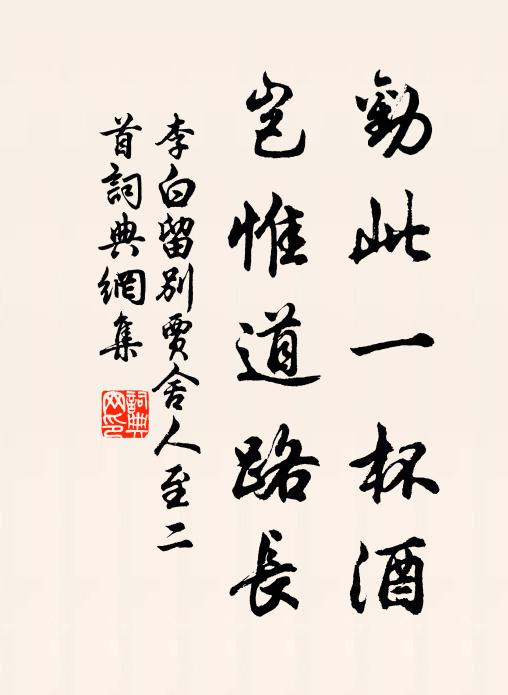 勸此一杯酒
豈惟道路長
李白留別賈舍人至二
首詞典網集
詞典
网印